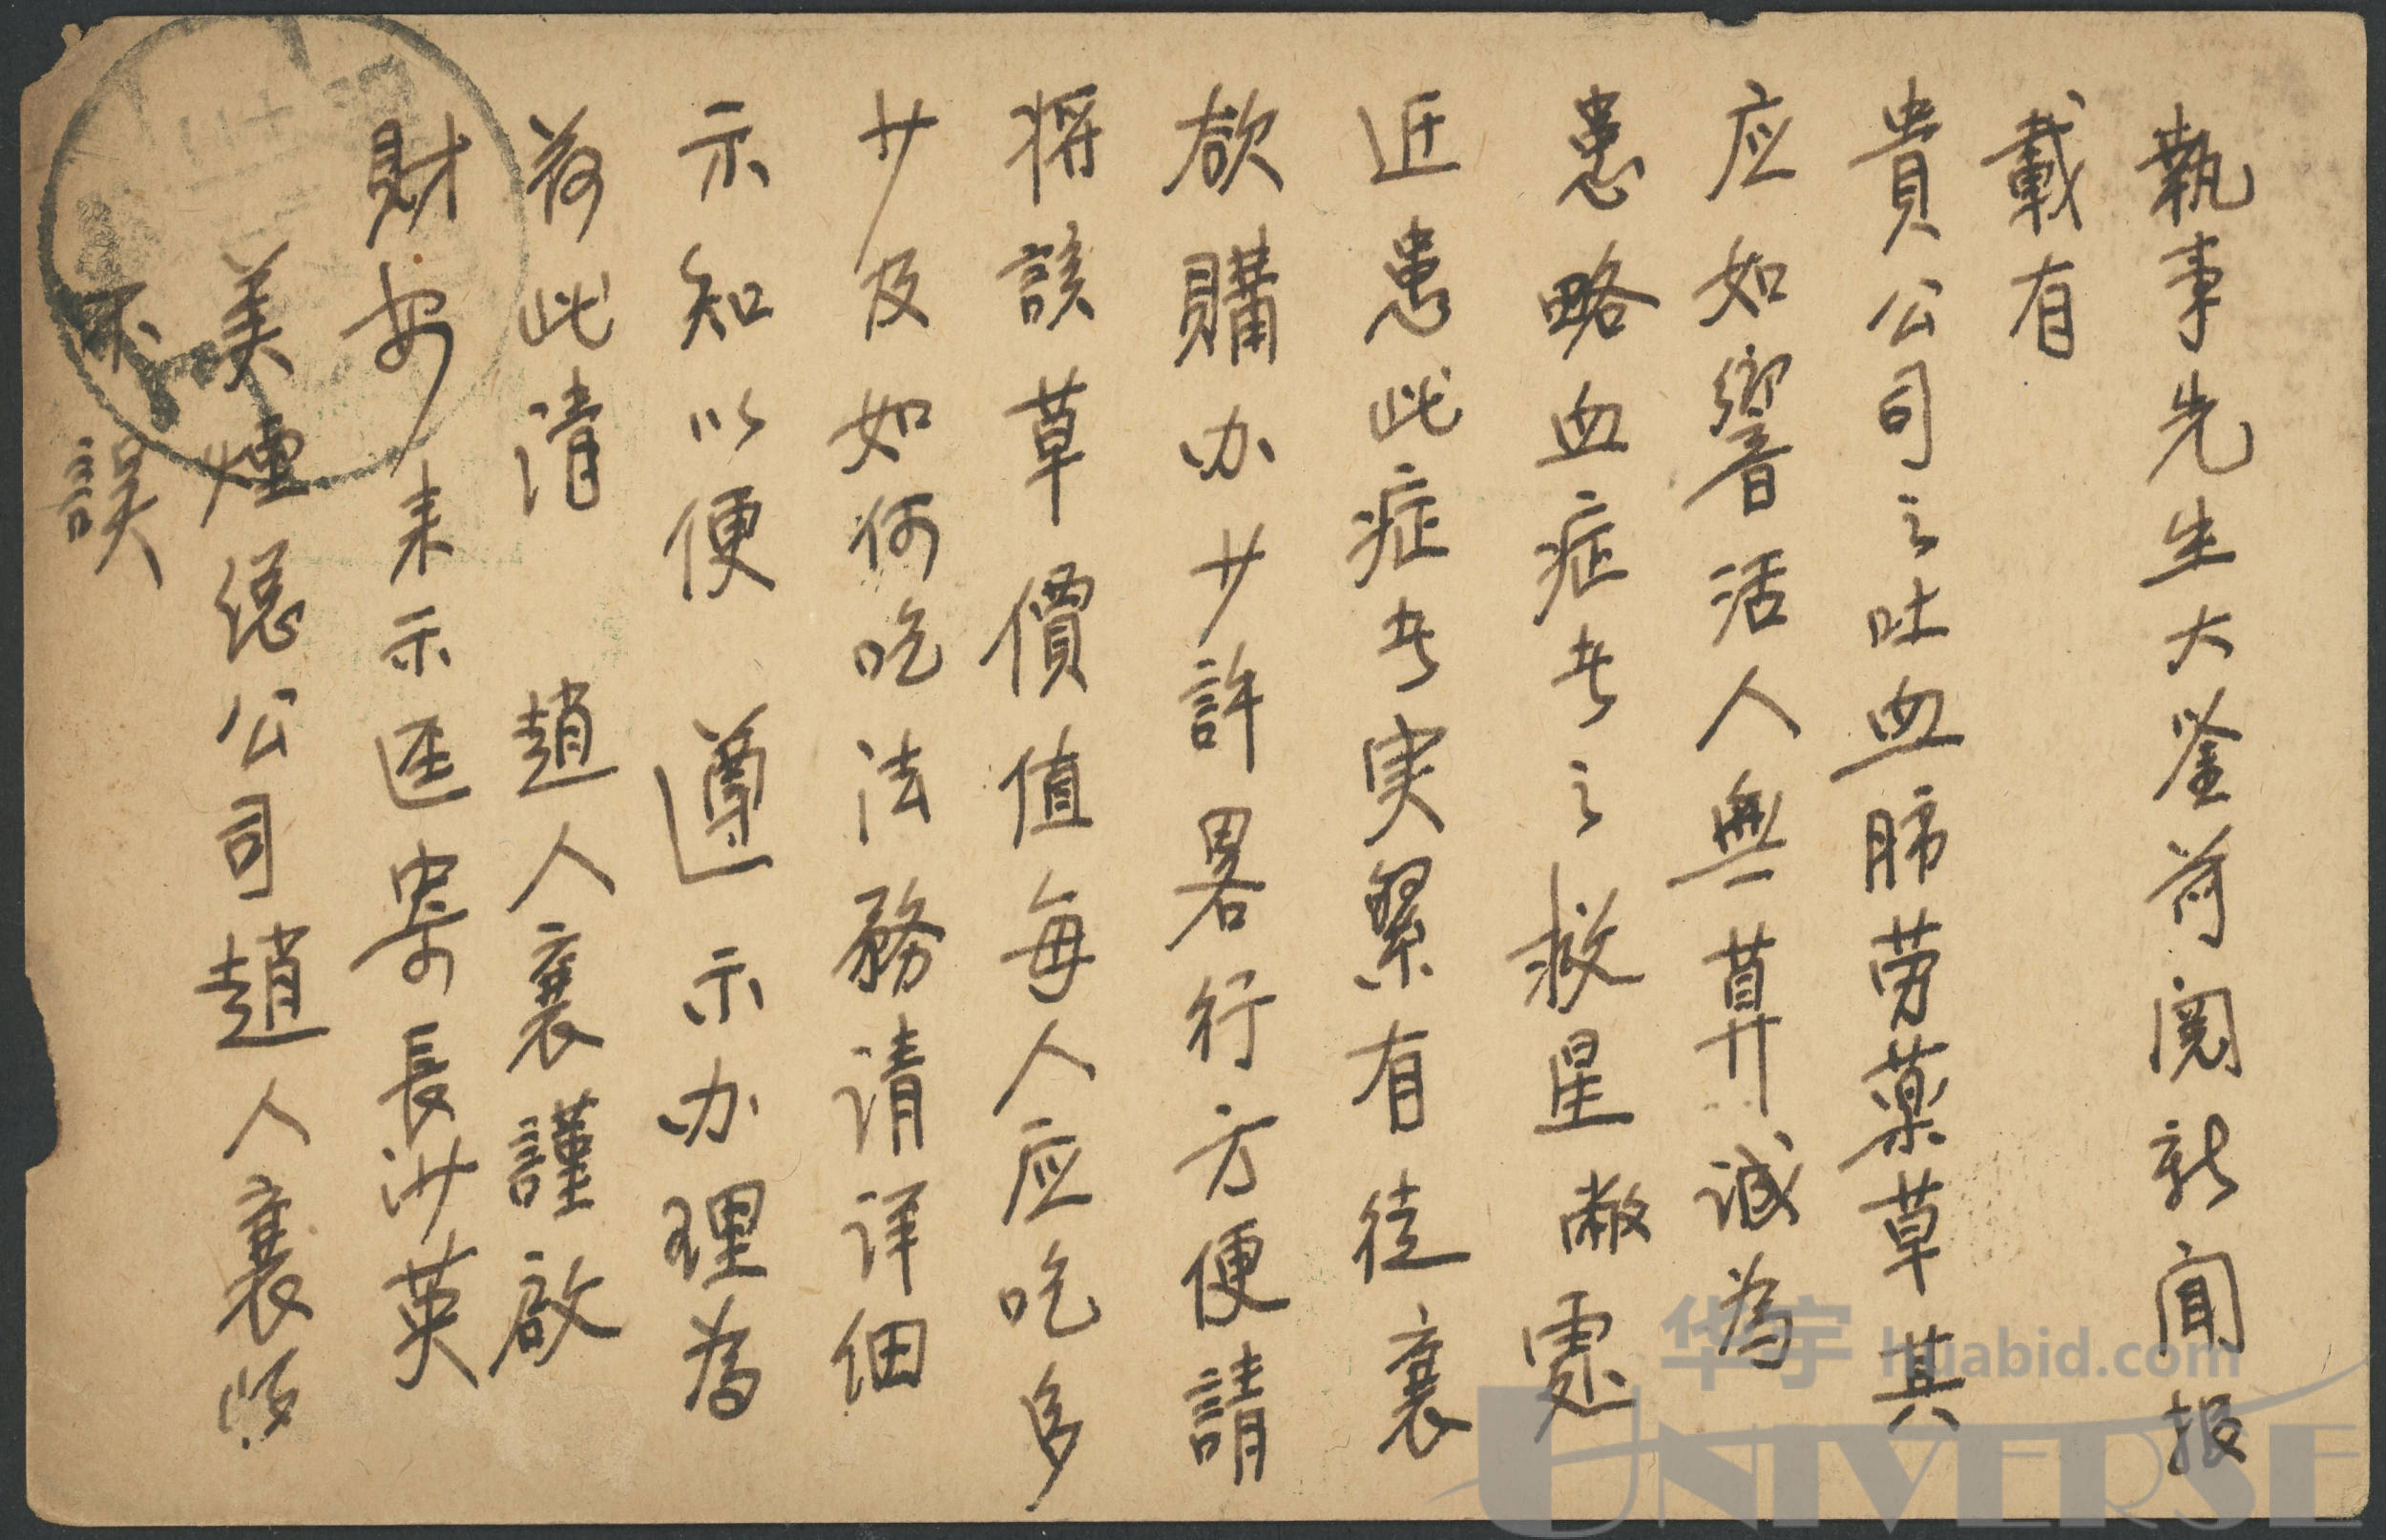 執事先生大鉴前閱新聞报
載有
貴公司之吐血肺劳藥草其
应如響活人無算诚為
患略血症者之救星敝處
近患此症者实繁有徒襄
欲購办少許畧行方便請
将該草價值每人应吃多
少及如何吃法務请详细
示知以便 遵示办理為
荷此请 趙人襄謹啟
財安 来示迳寄長沙英
美煙總公司趙人襄收
不誤
华宇 huabid.com
UNIVERSE